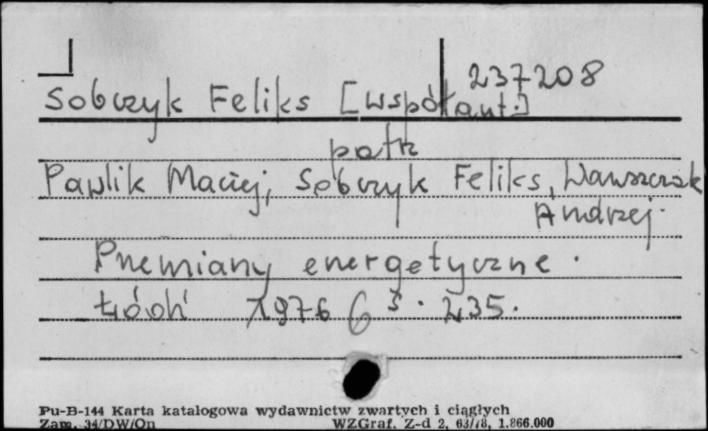 237208
Sobczyk Feliks [współaut.]
patrz
Pawlik Maciej, Sobczyk Feliks, Wawszczak
Andrzej.
Przemiany energetyczne.
Łódź 1976 6 s. 235.
Pu-B-144 Karta katalogowa wydawnictw zwartych i ciągłych
Zam. 34/DW/On WZGraf. Z-d 2, 63/78, 1.866.000